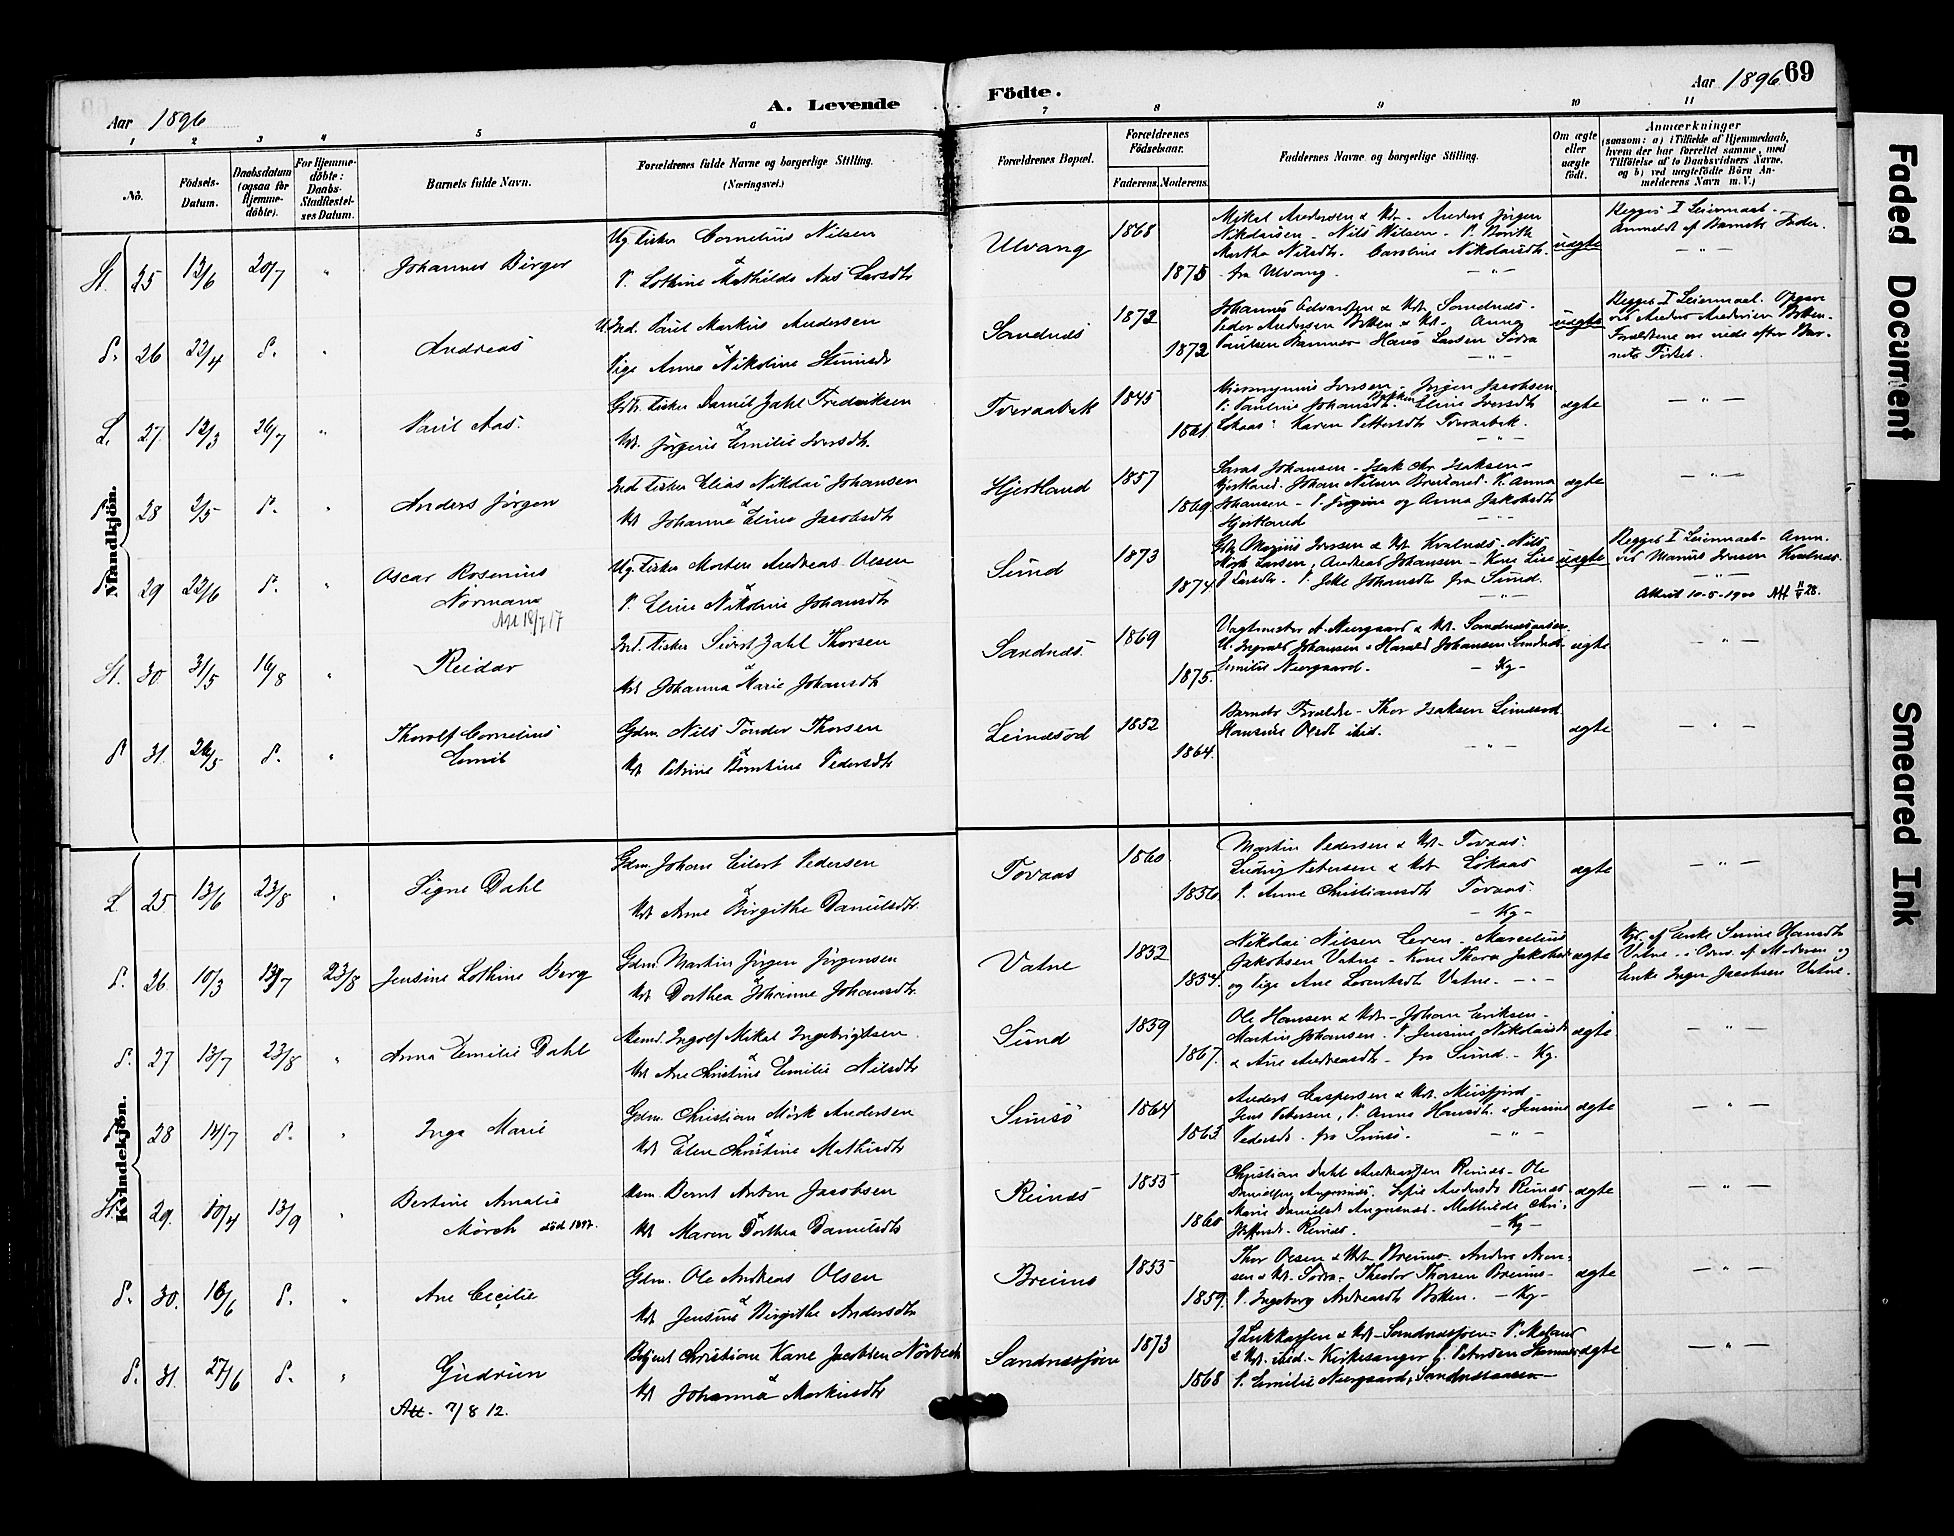 Aar 1896
A. Levende
Födte.
Aar 1896
69
1 2 3 4 5 6 7 8 9 10 11
No.
Födsels-Datum.
Daabsdatum (ogsaa for Hjemme-döbte).
For Hjemme-döbte: Daabs-Stadfæstel-ses Datum.
Barnets fulde Navn.
Forældrenes fulde Navne og borgerlige Stilling.
(Næringsvei.)
Forældrenes Bopæl.
Forældrenes Födselsaar.
Faderens. Moderens.
Faddernes Navne og borgerlige Stilling.
Om ægte eller uægte födt.
Anmærkninger
(saasom: a) i Tilfælde af Hjemmedaab,
hvem der har forrettet samme, med
Tilföielse af to Daabsvidners Navne,
og b) ved uægtefödte Börn An-
melderens Navn m. V.)
Mandkjön.
St. 25 13/6 20/7 " Johannes Birger
Ug. Fisker Cornelius Nilsen
&
P. Lothine Mathilde Aas Larsdtr
Ulvang 1868 1875
Mikal Andersen & Kst. Anders Jörgen
Nikolaisen - Nils Nilsen - P. Berith
Martha Nilsdtr. Caroline Nikolaisdtr.
fra Ulvang. - " -
uægte
Begges I Leiermaal -
Anmeldt af Barnets Fader.
- " -
26 22/4 " Andreas
Ind. Paul Markus Andersen
&
Pige Anna Nikoline
Sandnes 1872 1872
Johannes Edvardsen & Kst. Sandnes.
Peder Andersen Botten & Kst. Anna
Paulsen Hans Larsen Södra
- " -
uægte
Begges I Leiermaal. Opgave
ved Anders Andersen Botten.
Forældrene
27 12/3 26/7 " Paul Aas.
Gbr. Fisker Daniel Zahl Fredriksen
&
Kst. Jörgine Emilie Iversdtr.
Tveraabak 1845 1861
Hieronymus Iversen - Jörgen Jacobsen
P. Pauline Johansdtr. Botten Eline Iversdtr
Lökaas Karen Pettersdtr Tveraabak.
- " -
ægte
- " -
28 2/5 " Anders Jörgen
Ind. Fisker Elias Nikolai Johansen
&
Kst. Johanna Eline Jacobsdtr
Hjertland 1857 1869
Johansen - Isak Chr. Isaksen -
Hjertland. Johan Nilsen K. Anna
Johansen - P. Jörgine og Anna Jakobsdtr
Hjertland - " -
ægte
- " -
29 22/6 " Oscar Rosenius
Normann
Att 18/7 17
Ug. Fisker Morten Andreas Olsen
&
P. Eline Nikoline Johansdtr
Sund 1873 1874
Gbr. Marius Iversen & Kst. Kvalnes. Nils
Mörk Larsen, Andreas Johansen - Kone Lise
P. Larsdtr. P. Johansdtr fra Sund.
- " -
uægte
Begges I Leiermaal - Anm.
ved Marius Iversen Kvalnes.
- " -
Attest 10-5-1900 Att 11/5 28.
St. 30. 31/5 16/8 " Reidar
Ind. Fisker Sivert Zahl Thorsen
&
Kst. Johanna Marie Johansdtr
Sandnes. 1869 1875.
Vagtmester A. Neergaard & Kst. Sandnessjöen
U. Ingvald Johansen & Harald Johansen Sandnes
Emilie Neergaard. - Kg -
ægte
- " -
31. 26/5 " Thorolf Cornelius
Emil
Gdm. Nils Tönder Thorsen
&
Kst. Petrine Berntine Pedersdtr
Leinesöd 1852 1864.
Barnets Forældre - Thor Isaksen Leinesöd
Hansine Olsdtr ibid. - " -
ægte
- " -
Kvindekjön.
L. 25. 13/6 23/8 " Signe Dahl
Gdm. Johan Eilert Pedersen
&
Kst. Anne Birgithe Danielsdtr.
Tovaas 1860 1856.
Martin Pedersen & Kst. Tovaas.
Ludvig Petersen & Kst. Lökaas
P. Anne Christiansdtr Tovaas.
- Kg -
ægte
- " -
26. 10/3 13/7 23/8 Jensine Lothine Berg
Gdm. Martin Jörgen Jörgensen
&
Kst. Dorthea Johanne Johansdtr.
Vatne 1832 1854.
Nikolai Nilsen Leren - Marcelius
Jakobsen Vatne - Kone Thora Jakobsd
og Pige Ane Lorentsdtr Vatne. - " -
ægte
Hjd. af Enke Sirine Hansdtr
Vatne - Overv. af Moderen og
Enke Inger Jacobsen Vatne.
27 13/7 23/8 " Anna Emilie Dahl
Ingolf Mikal Ingebrigtsen.
&
Kst. Ane Christine Emilie Nilsdtr
Sund 1859 1867.
Ole Hansen & Kst. - Johan Eriksen -
Martin Johansen. P. Jensine Nikolaisdtr
& Ane Andreasdtr - fra Sund. - Kg.
ægte
- " -
28 14/7 " Inga Marie
Gdm. Christian Mörk Andersen
&
Kst. Elen Christine Mathisdtr
Sunsö 1864 1863.
Anders Caspersen & Kst. Meisfjord -
Jens Petersen, P. Anna Hansdtr. & Jensine
Pedersdtr. fra Sunsö. - " -
ægte
- " -
St. 29. 10/4 13/9 " Bertine Amalie
Mörch död 1897.
Bernt Anton Jacobsen
&
Kst. Maren Dorthea Danielsdtr
Reines 1855 1860
Christian Dahl Andreassen Reines - Ole
Danielsen Angersnes. Sofie Andersdtr Reines
Marie Danielsdtr Angersnes - Mathilde Chri-
stoffersdtr - Reines. - Kg -
ægte
- " -
30. 16/6 " Ane Cecilie
Gdm. Ole Andreas Olsen
&
Kst. Jensine Birgithe Andersdtr
Breines 1855 1859.
Thor Olsen & Kst. Breines - Anders Aron-
sen & Kst. Södra - Theodor Thorsen Breines -
P. Ingeborg Andreasdtr Botten. - Kg -
ægte
- " -
31. 27/6 " Gudrun
Att. 7/8 12.
Betjent Christian Kane Jacobsen Nörbech
&
Kst. Johanna Markusdtr
Sandnessjöen 1873 1868
& Kst. Sandnessjöen - P.
& Kst. ibid. - Kirkesanger Petersen
P. Emilie Neergaard, Sandnessjöen -
ægte
- " -
Faded Document
Smeared Ink